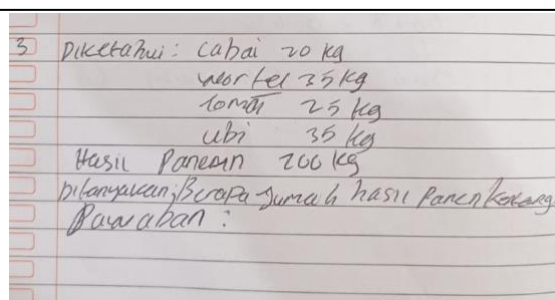 3 Diketahui : cabai 20 kg
wortel 35 kg
tomat 25 kg
ubi 35 kg
Hasil Panenan 200 kg
Ditanyakan; Berapa Jumlah hasil Panen kacang
Jawaban :